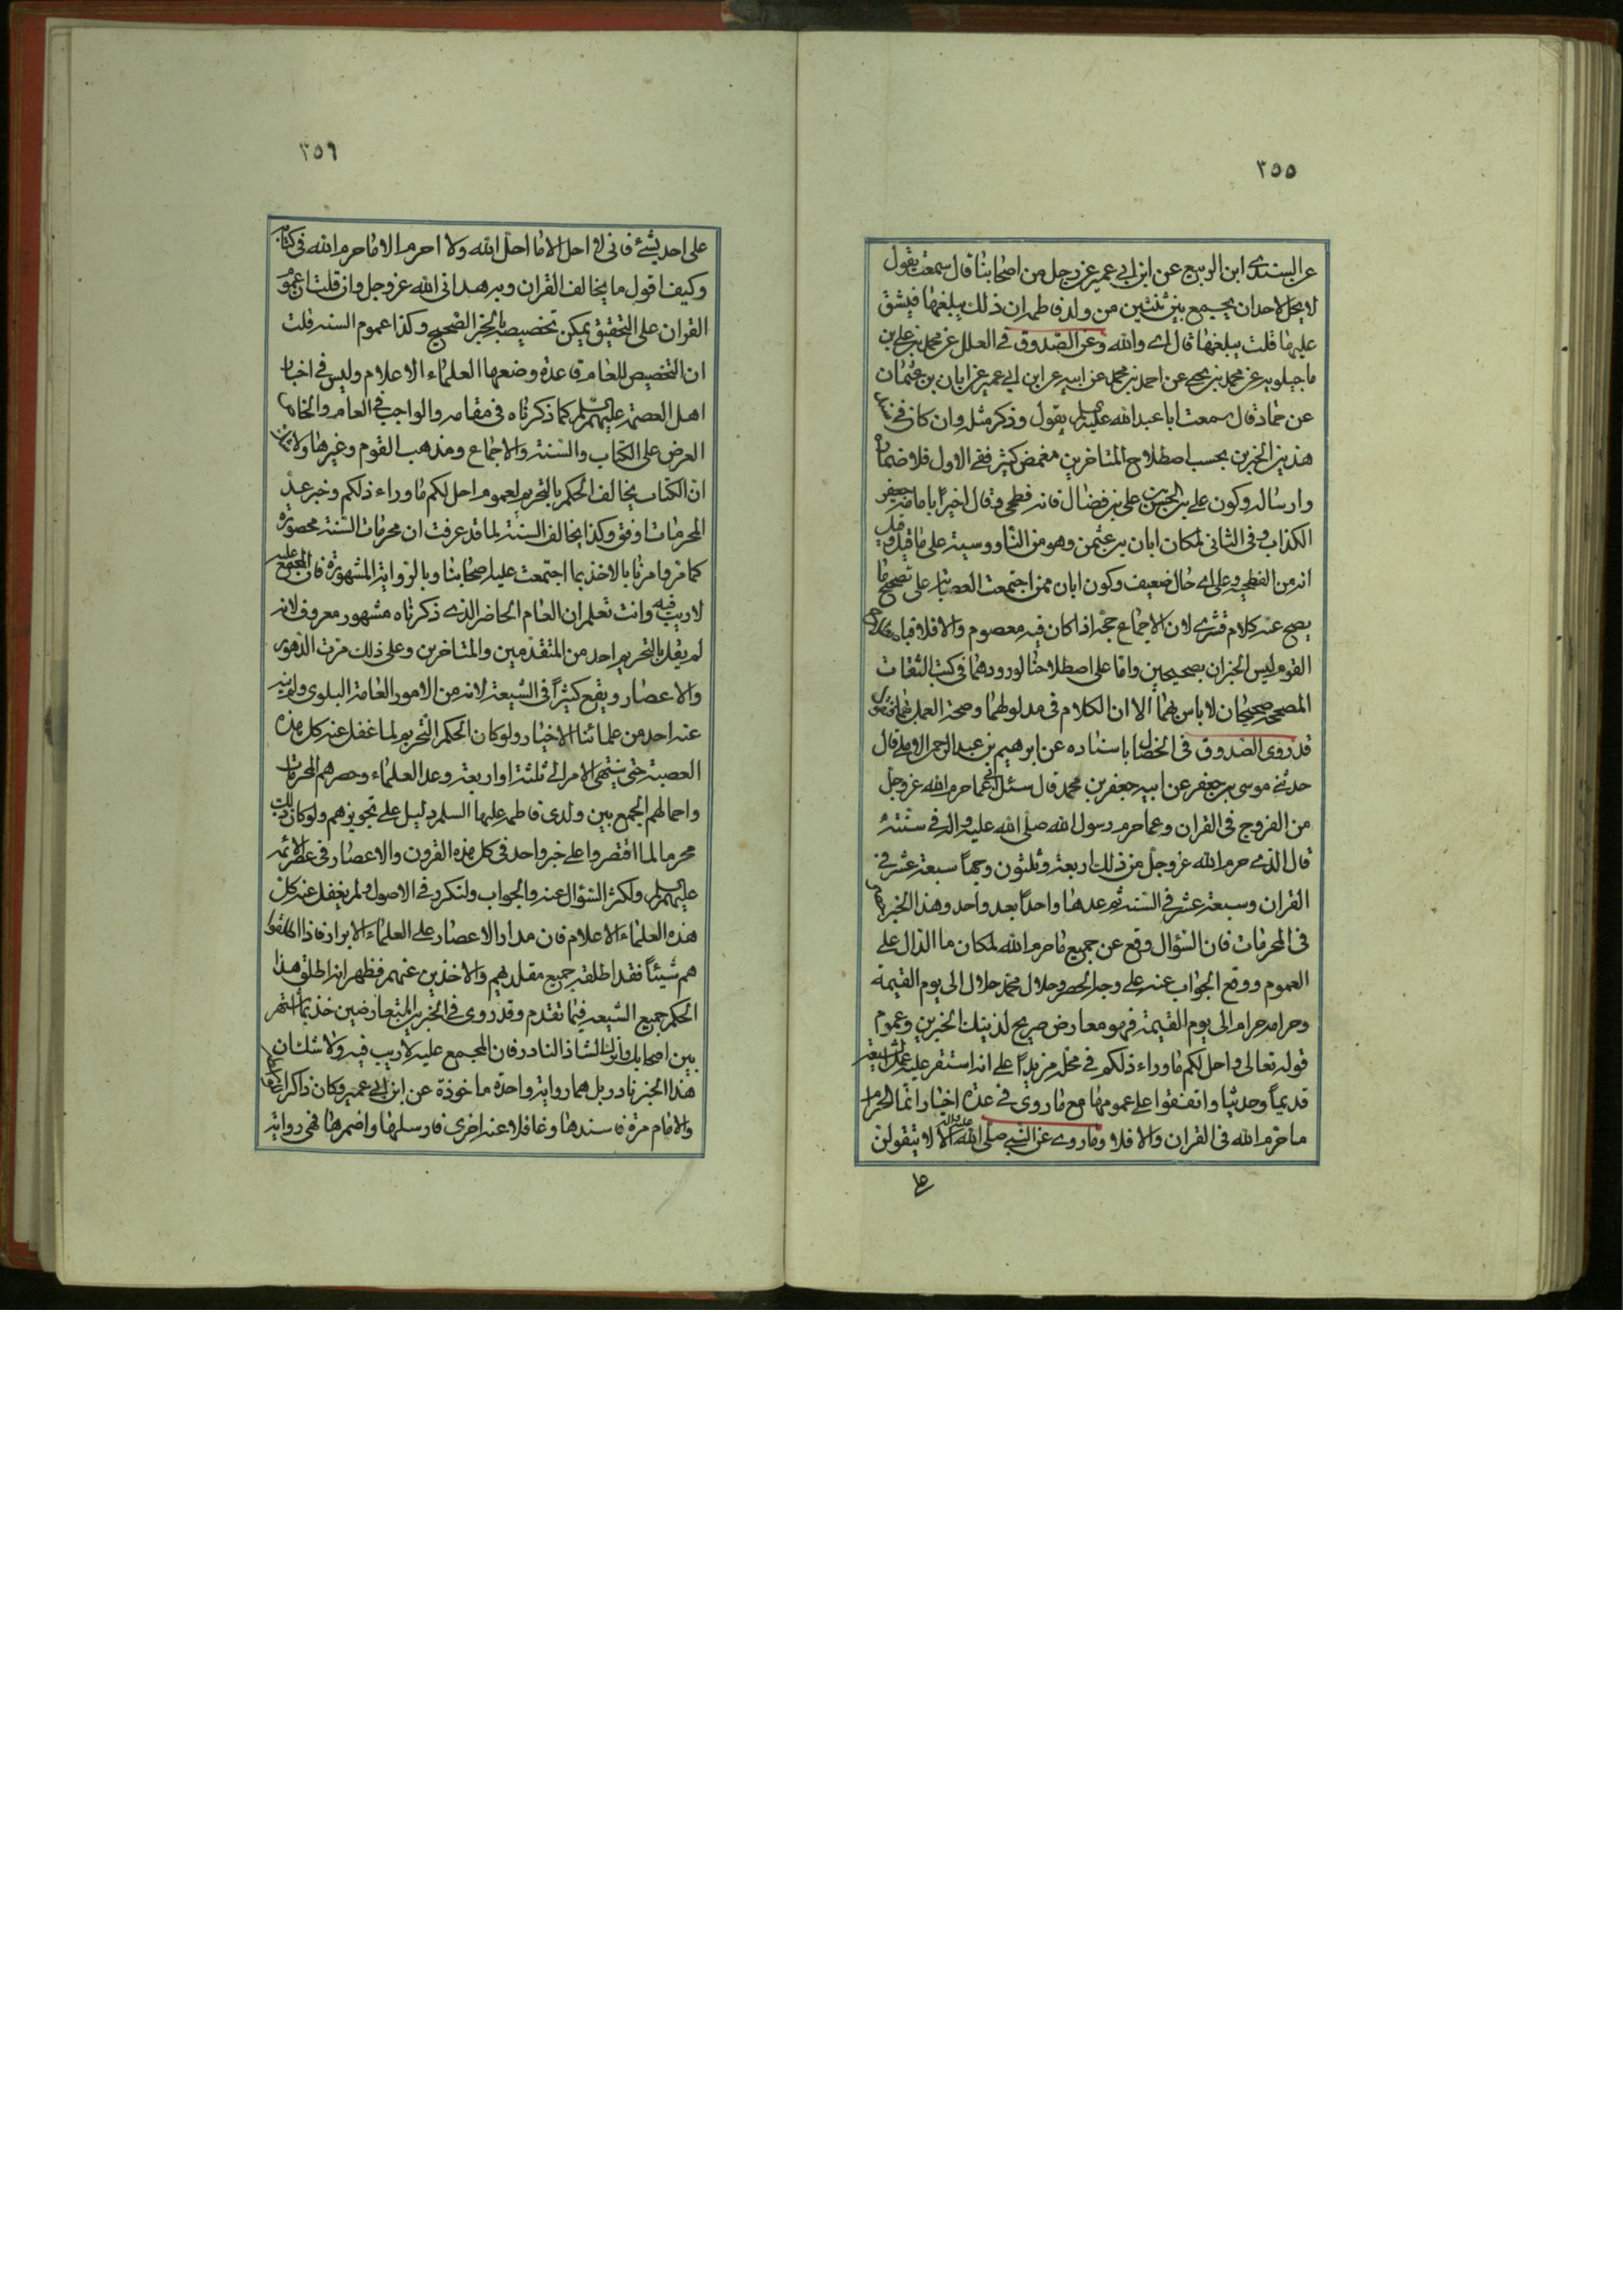 ٣٥٥
عن السندي ابن الربيع عن ابن ابي عمير عن رجل من اصحابنا قال سمعته يقول
لا يحل لاحد ان يجمع بين ثنتين من ولد فاطمه ان ذلك يبلغها فيشق
عليها قلت يبلغها قال اي والله وعن الصدوق في العلل عن محمد بن علي بن
ماجيلويه عن محمد بن يحيى عن احمد بن محمد عن ابيه عن ابن ابي عمير عن ابان بن عثمان
عن حماد قال سمعت ابا عبدالله عليه السلم يقول وذكر مثله وان كان في
هذين الخبرين بحسب اصطلاح المتاخرين مغمض كثير ففي الاول فلاضماره
وارساله وكون علي بن الحسن بن علي بن فضال فانه فطحي وقال اخيرا بامامة جعفر
الكذاب وفي الثاني لمكان ابان بن عثمن وهو من الناووسية على ما قيل وقيل
انه من الفطحية وعلى اي حال ضعيف وكون ابان ممن اجتمعت العصابة على تصحيح ما
يصح عنه كلام قشري لان الاجماع حجة اذا كان فيه معصوم والا فلا فباصطلاح
القوم ليس الخبران بصحيحين واما على اصطلاحنا لورودهما في كتب الثقات
المصححة صحيحان لا باس بهما الا ان الكلام في مدلولهما وصحة العمل بهما فنقول
قد روى الصدوق في الخصال باسناده عن ابرهيم بن عبد الرحمن الاملي قال
حدثني موسى بن جعفر عن ابيه جعفر بن محمد قال سئل ابي عما حرم الله عز وجل
من الفروج في القران وعما حرم رسول الله صلى الله عليه واله في سنته
قال الذي حرم الله عز وجل من ذلك اربعة وثلثون وجها سبعة عشر في
القران وسبعة عشر في السنة ثم عدها واحدا بعد واحد وهذا الخبر
في المحرمات فان السؤال وقع عن جميع ما حرم الله لمكان ما الدال على
العموم ووقع الجواب عنه على وجه الحصر وحلال محمد حلال الى يوم القيمة
وحرامه حرام الى يوم القيمة فهو معارض صريح لذينك الخبرين وعموم
قوله تعالى واحل لكم ما وراء ذلكم في محله مزيدا على انه استقر عليه عمل الشيعة
قديما وحديثا واتفقوا على عمومها مع ما روى في عدة اخبار انما الحرام
ما حرم الله في القران والا فلا وما روي عن النبي صلى الله عليه واله الا لا يتقولن
على
٣٥٦
على احد بشئ فاني لا احل الا ما احل الله ولا احرم الا ما حرم الله في كتابه
وكيف اقول ما يخالف القران وبه هداني الله عز وجل وان قلت ان عموم
القران على التحقيق يمكن تخصيصه بالخبر الصحيح وكذا عموم السنه قلت
ان التخصيص للعام قاعدة وضعها العلماء الاعلام وليس في اخبار
اهل العصمة عليهم السلم كما ذكرناه في مقامه والواجب في العام والخاص
العرض على الكتاب والسنة والاجماع ومذهب القوم وغيرها ولا
ان الكتاب يخالف الحكم بالتحريم لعموم احل لكم ما وراء ذلكم وخبر عد
المحرمات اوفق وكذا يخالف السنة لما قد عرفت ان محرمات السنة محصورة
كما مر وامرنا بالاخذ بما اجتمعت عليه اصحابنا وبالرواية المشهورة فان المجمع عليه
لا ريب فيه وانت تعلم ان العام الحاضر الذي ذكرناه مشهور معروف لانه
لم يقل بالتحريم احد من المتقدمين والمتاخرين وعلى ذلك مرت الدهور
والاعصار ويقع كثيرا في الشيعة لانه من الامور العامة البلوى ولم ينه
عنه احد من علمائنا الاخيار ولو كان الحكم التحريم لما غفل عنه كل هذه
العصبة حتى ينتهي الامر الى ثلثة او اربعة وعد العلماء وحصرهم المحرمات
واحمالهم الجمع بين ولدي فاطمه عليها السلم دليل على تجويزهم ولو كان ذلك
محرما لما اقتصروا على خبر واحد في كل هذه القرون والاعصار في عصر الائمه
عليهم السلم ولكثر السؤال عنه والجواب ولتكرر في الاصول ولم يغفل عنه كل
هذه العلماء الاعلام فان مدار الاعصار على العلماء الابرار فاذا اطلقوا
هم شيئا فقد اطلقه جميع مقلديهم والاخذين عنهم فظهر انه اطلق هذا
الحكم جميع الشيعه فيما تقدم وقد روى في الخبرين المتعارضين خذ بما اشتهر
بين اصحابك واترك الشاذ النادر فان المجمع عليه لا ريب فيه ولا شك ان
هذا الخبر نادر بل هما رواية واحدة ماخوذة عن ابن ابي عمير وكان ذاكرا
والامام مرة فاسندها وغافلا عنه اخرى فارسلها واضمرها فهي رواية